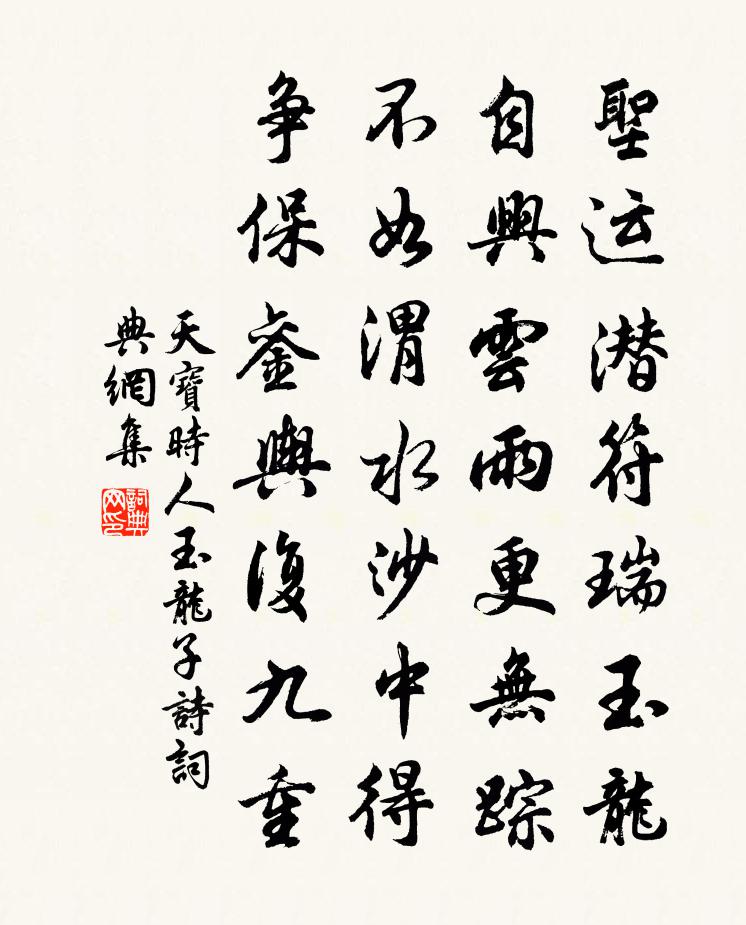 聖运潜符瑞玉龍
自興雲雨更無踪
不如渭水沙中得
争保銮輿復九重
天寶時人玉龍子詩詞
典網集
詞典网印